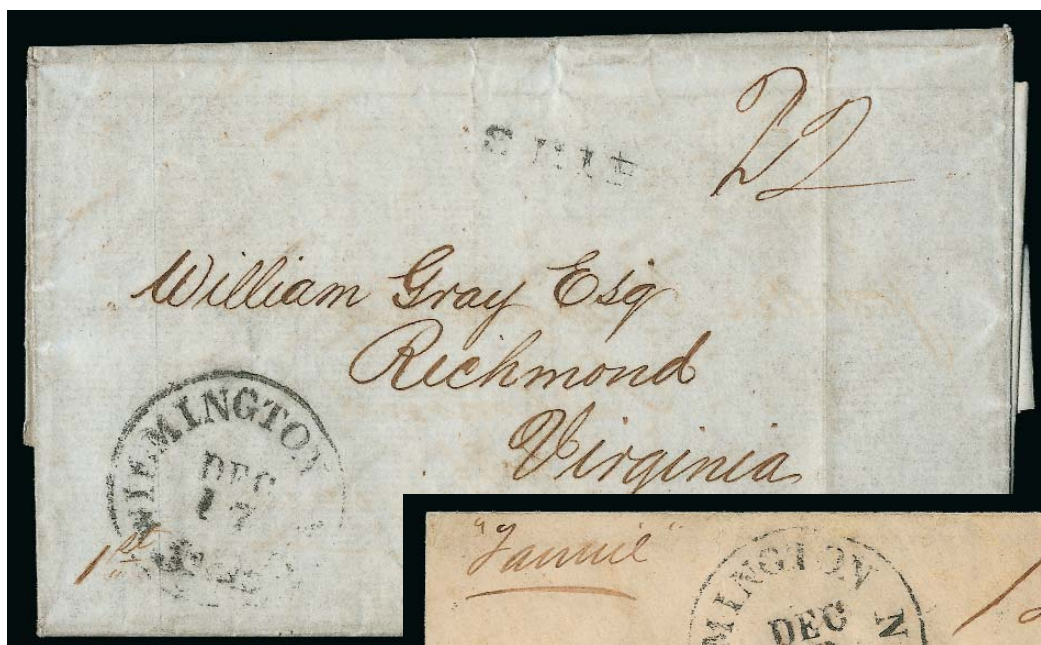 SHIP
22
William Gray Esq
Richmond
Virginia
WILMINGTON
DEC
17
1st
"Fannie"
MINGTON N
DEC